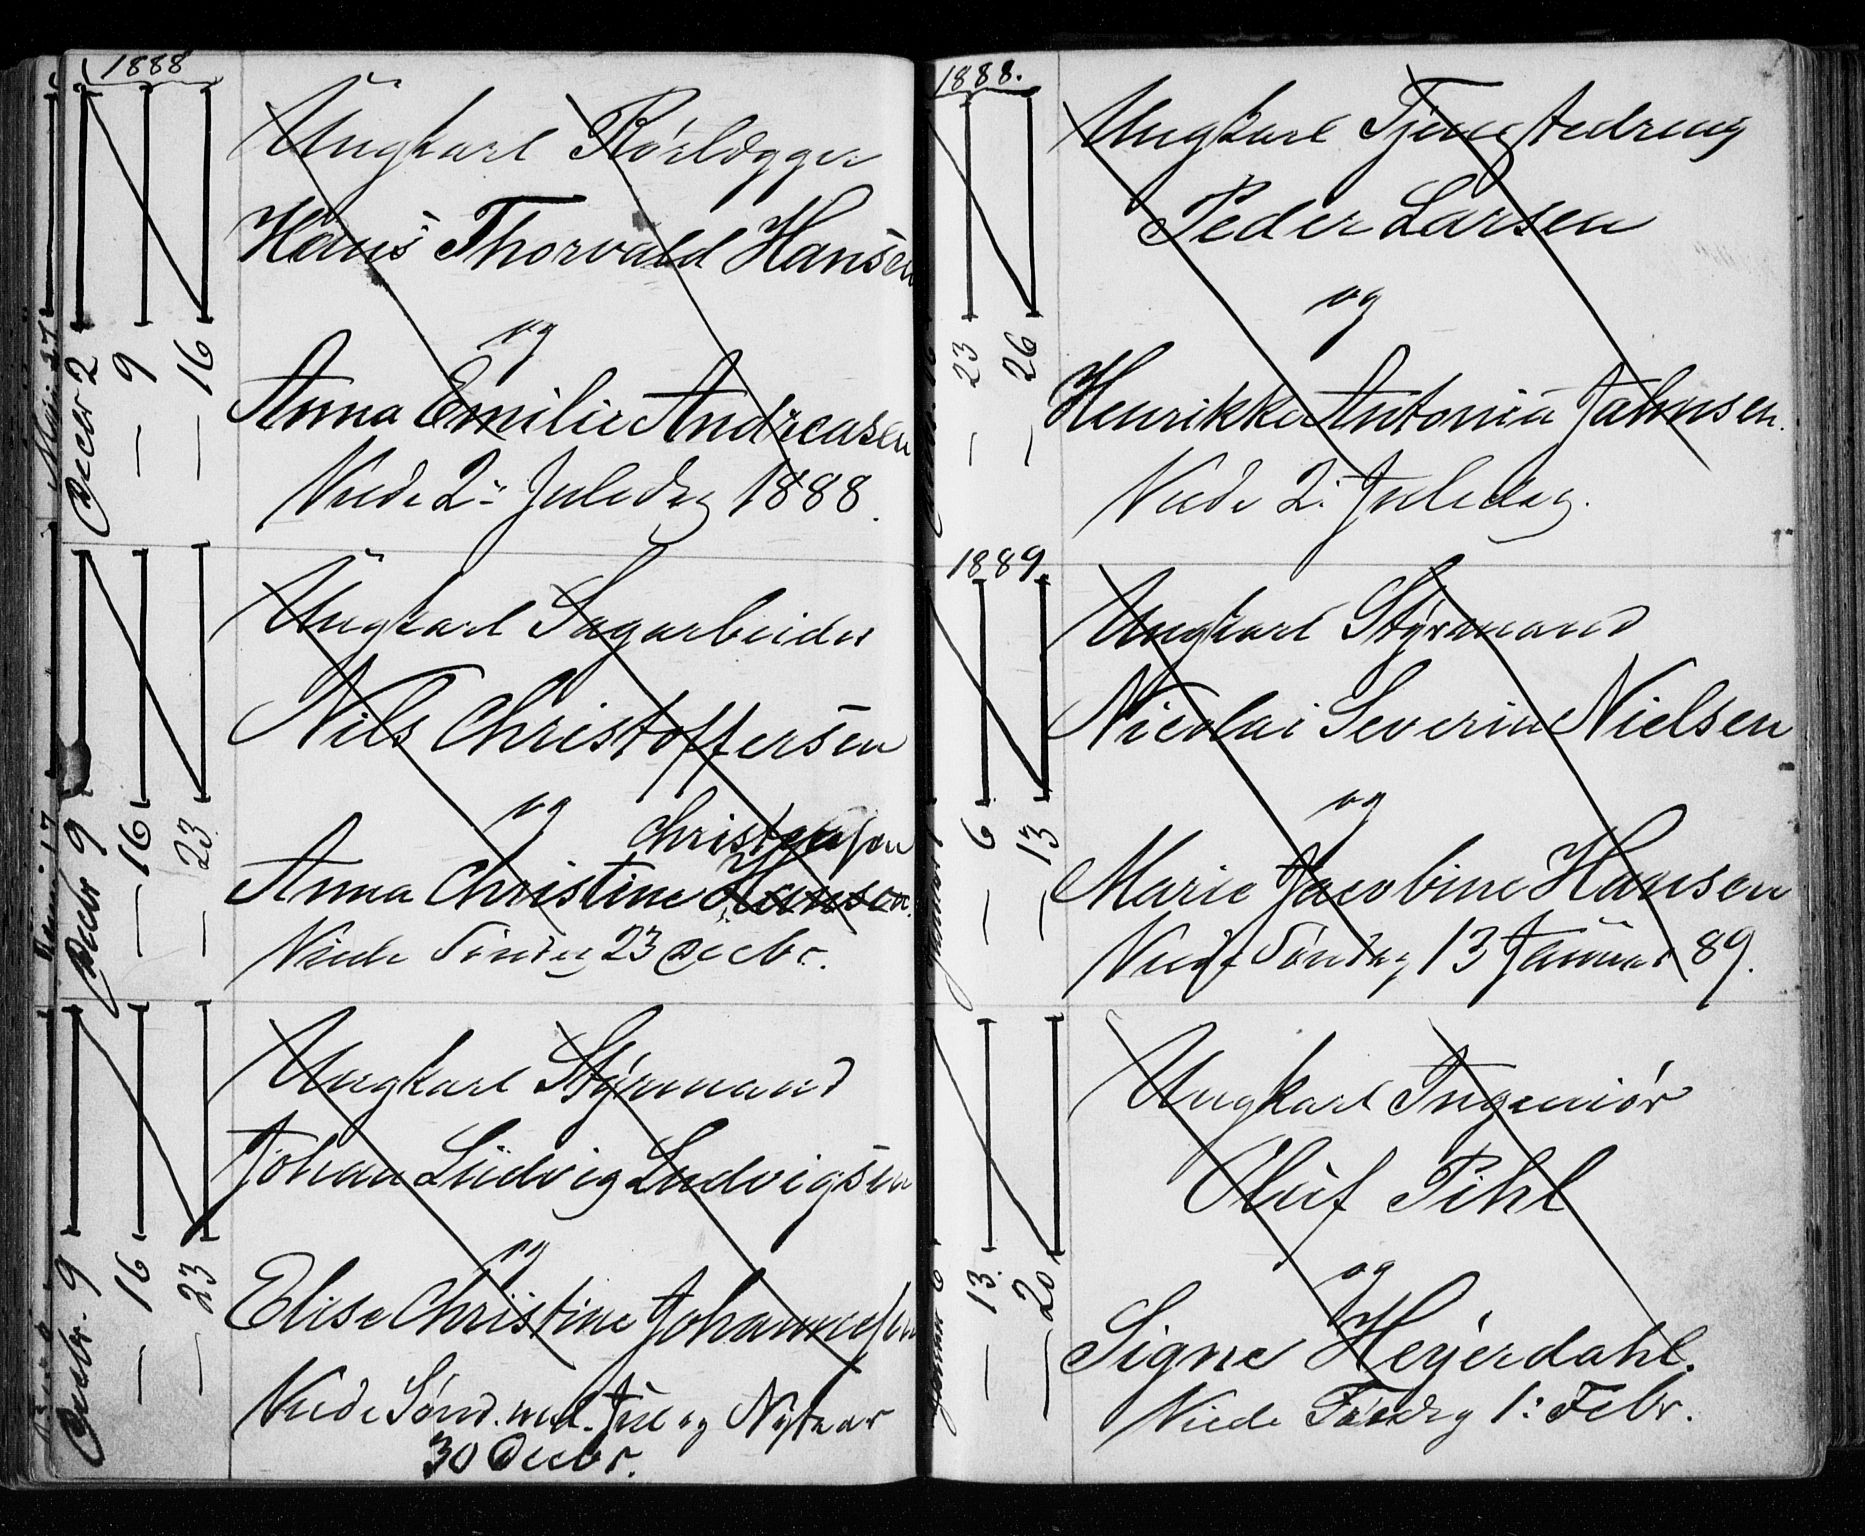 1888
Decbr 2
— 9
— 16
Ungkarl Rörlægger
Hans Thorvald Hansen
og
Anna Emilie Andreasen
Viede 2: Juledag 1888.
Decbr 9
— 16
— 23
Ungkarl Sagarbeider
Nils Christoffersen
og
Christensen
Anna Christine Hansen
Viede Söndag 23 Decbr.
Decbr. 9
— 16
— 23
Ungkarl Styrmand
Johan Ludvig Ludvigsen
og
Elise Christine Johannesen
Viede Sønd. mel. Jul og Nytaar
30 Decbr.
1888.
— 23
— 26
Ungkarl Tjenestedreng
Peder Larsen
og
Henrikke Antonia Jahnsen.
Viede 2: Juledag.
1889.
Januar
— 6
— 13
Ungkarl Styrmand
Nicolai Severin Nielsen
og
Marie Jacobine Hansen
Viede Søndag 13 Januar 89.
Januar 6
— 13
— 20
Ungkarl Ingeniör
Oluf Pihl
og
Signe Heyerdahl.
Viede Fredag 1: Febr.